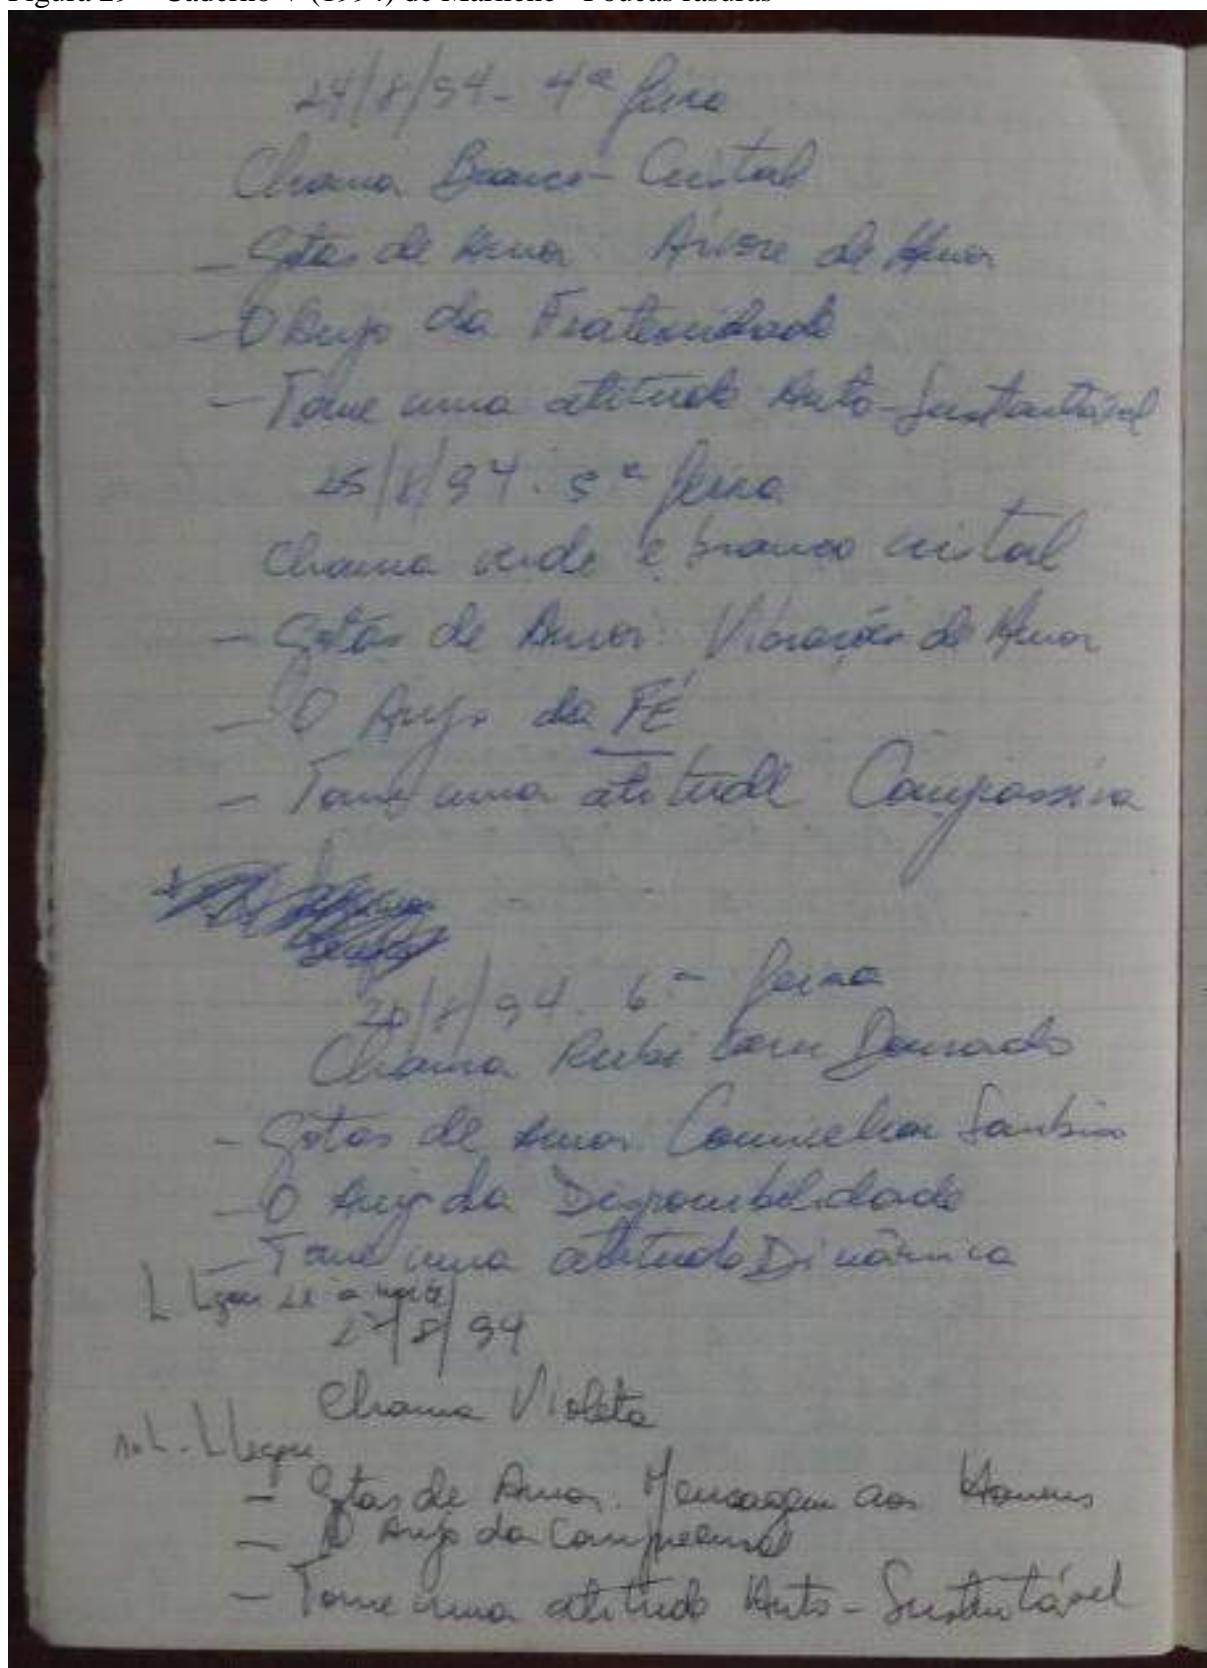 24/8/94 - 4ª feira
Chama Branco - Cristal
- Gotas de Amor. Árvore de Amor
- O Anjo da Fraternidade
- Tome uma atitude Auto-Sustentável
25/8/94. 5ª feira
Chama verde e branco cristal
- Gotas de Amor: Vibrações de Amor
- O Anjo da FÉ
- Tome uma atitude Compassiva
26/8/94. 6ª feira
Chama Rubi com Dourado
- Gotas de Amor.
- O Anjo da Disponibilidade
- Tome uma atitude Dinâmica
a noite
27/8/94
Chama Violeta
- Gotas de Amor. Mensagem aos Homens
- O Anjo da
- Tome uma atitude Auto-Sustentável